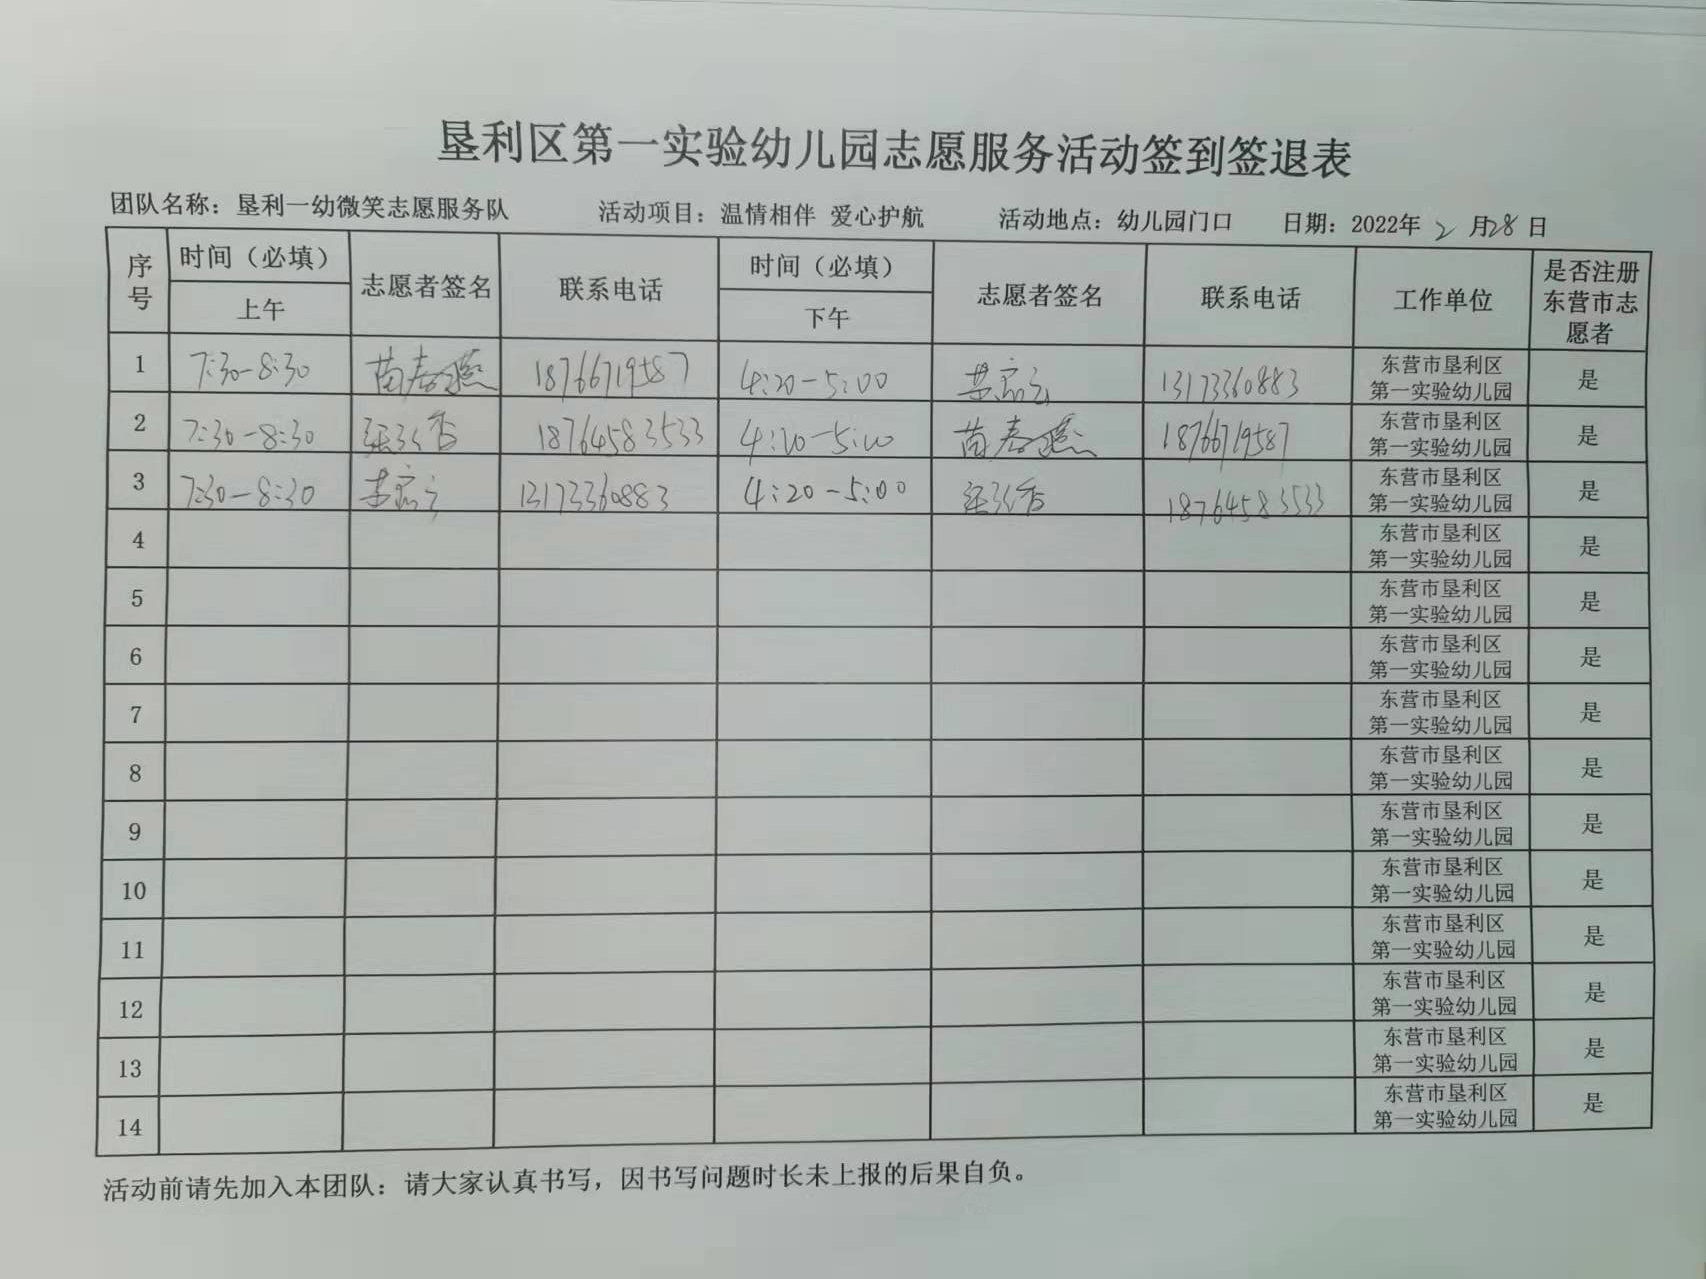 垦利区第一实验幼儿园志愿服务活动签到签退表
团队名称：垦利一幼微笑志愿服务队 活动项目：温情相伴 爱心护航 活动地点：幼儿园门口 日期：2022年 2 月28日
序号 时间（必填） 志愿者签名 联系电话 时间（必填） 志愿者签名 联系电话 工作单位 是否注册东营市志愿者
上午 下午
1 7:30-8:30 苗春燕 18766719587 4:20-5:00 13173360883 东营市垦利区第一实验幼儿园 是
2 7:30-8:30 18764583533 4:20-5:00 苗春燕 18766719587 东营市垦利区第一实验幼儿园 是
3 7:30-8:30 13173360883 4:20-5:00 18764583533 东营市垦利区第一实验幼儿园 是
4 东营市垦利区第一实验幼儿园 是
5 东营市垦利区第一实验幼儿园 是
6 东营市垦利区第一实验幼儿园 是
7 东营市垦利区第一实验幼儿园 是
8 东营市垦利区第一实验幼儿园 是
9 东营市垦利区第一实验幼儿园 是
10 东营市垦利区第一实验幼儿园 是
11 东营市垦利区第一实验幼儿园 是
12 东营市垦利区第一实验幼儿园 是
13 东营市垦利区第一实验幼儿园 是
14 东营市垦利区第一实验幼儿园 是
活动前请先加入本团队：请大家认真书写，因书写问题时长未上报的后果自负。